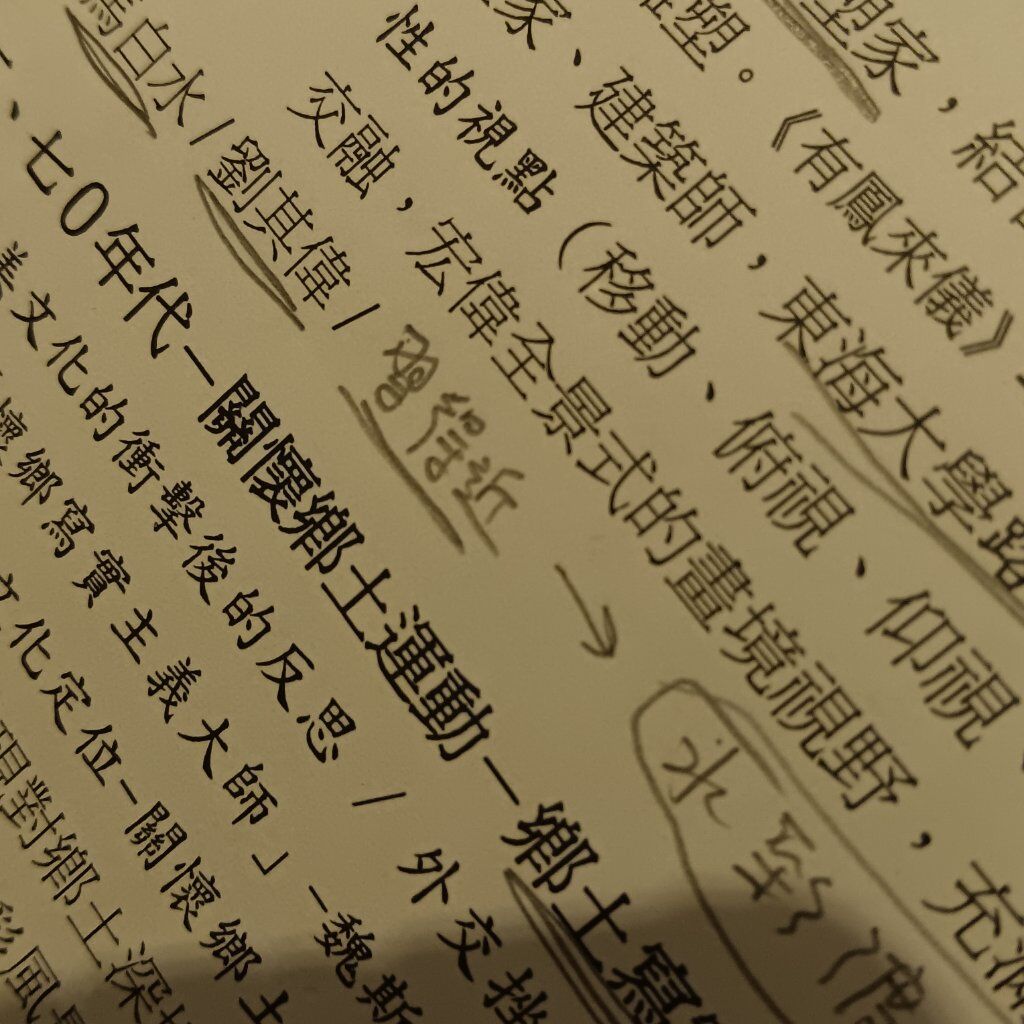 塑家，結
塑。《有鳳來儀》
家、建築師，東海大學路
性的視點（移動、俯視、仰視、
交融，宏偉全景式的畫境視野，充滿
馬白水/劉其偉/ → 水
、七0年代—關懷鄉土運動—鄉土寫實
義文化的衝擊後的反思 / 外交挫
懷鄉寫實主義大師」—魏斯
文化定位—關懷鄉土
現對鄉土深
風